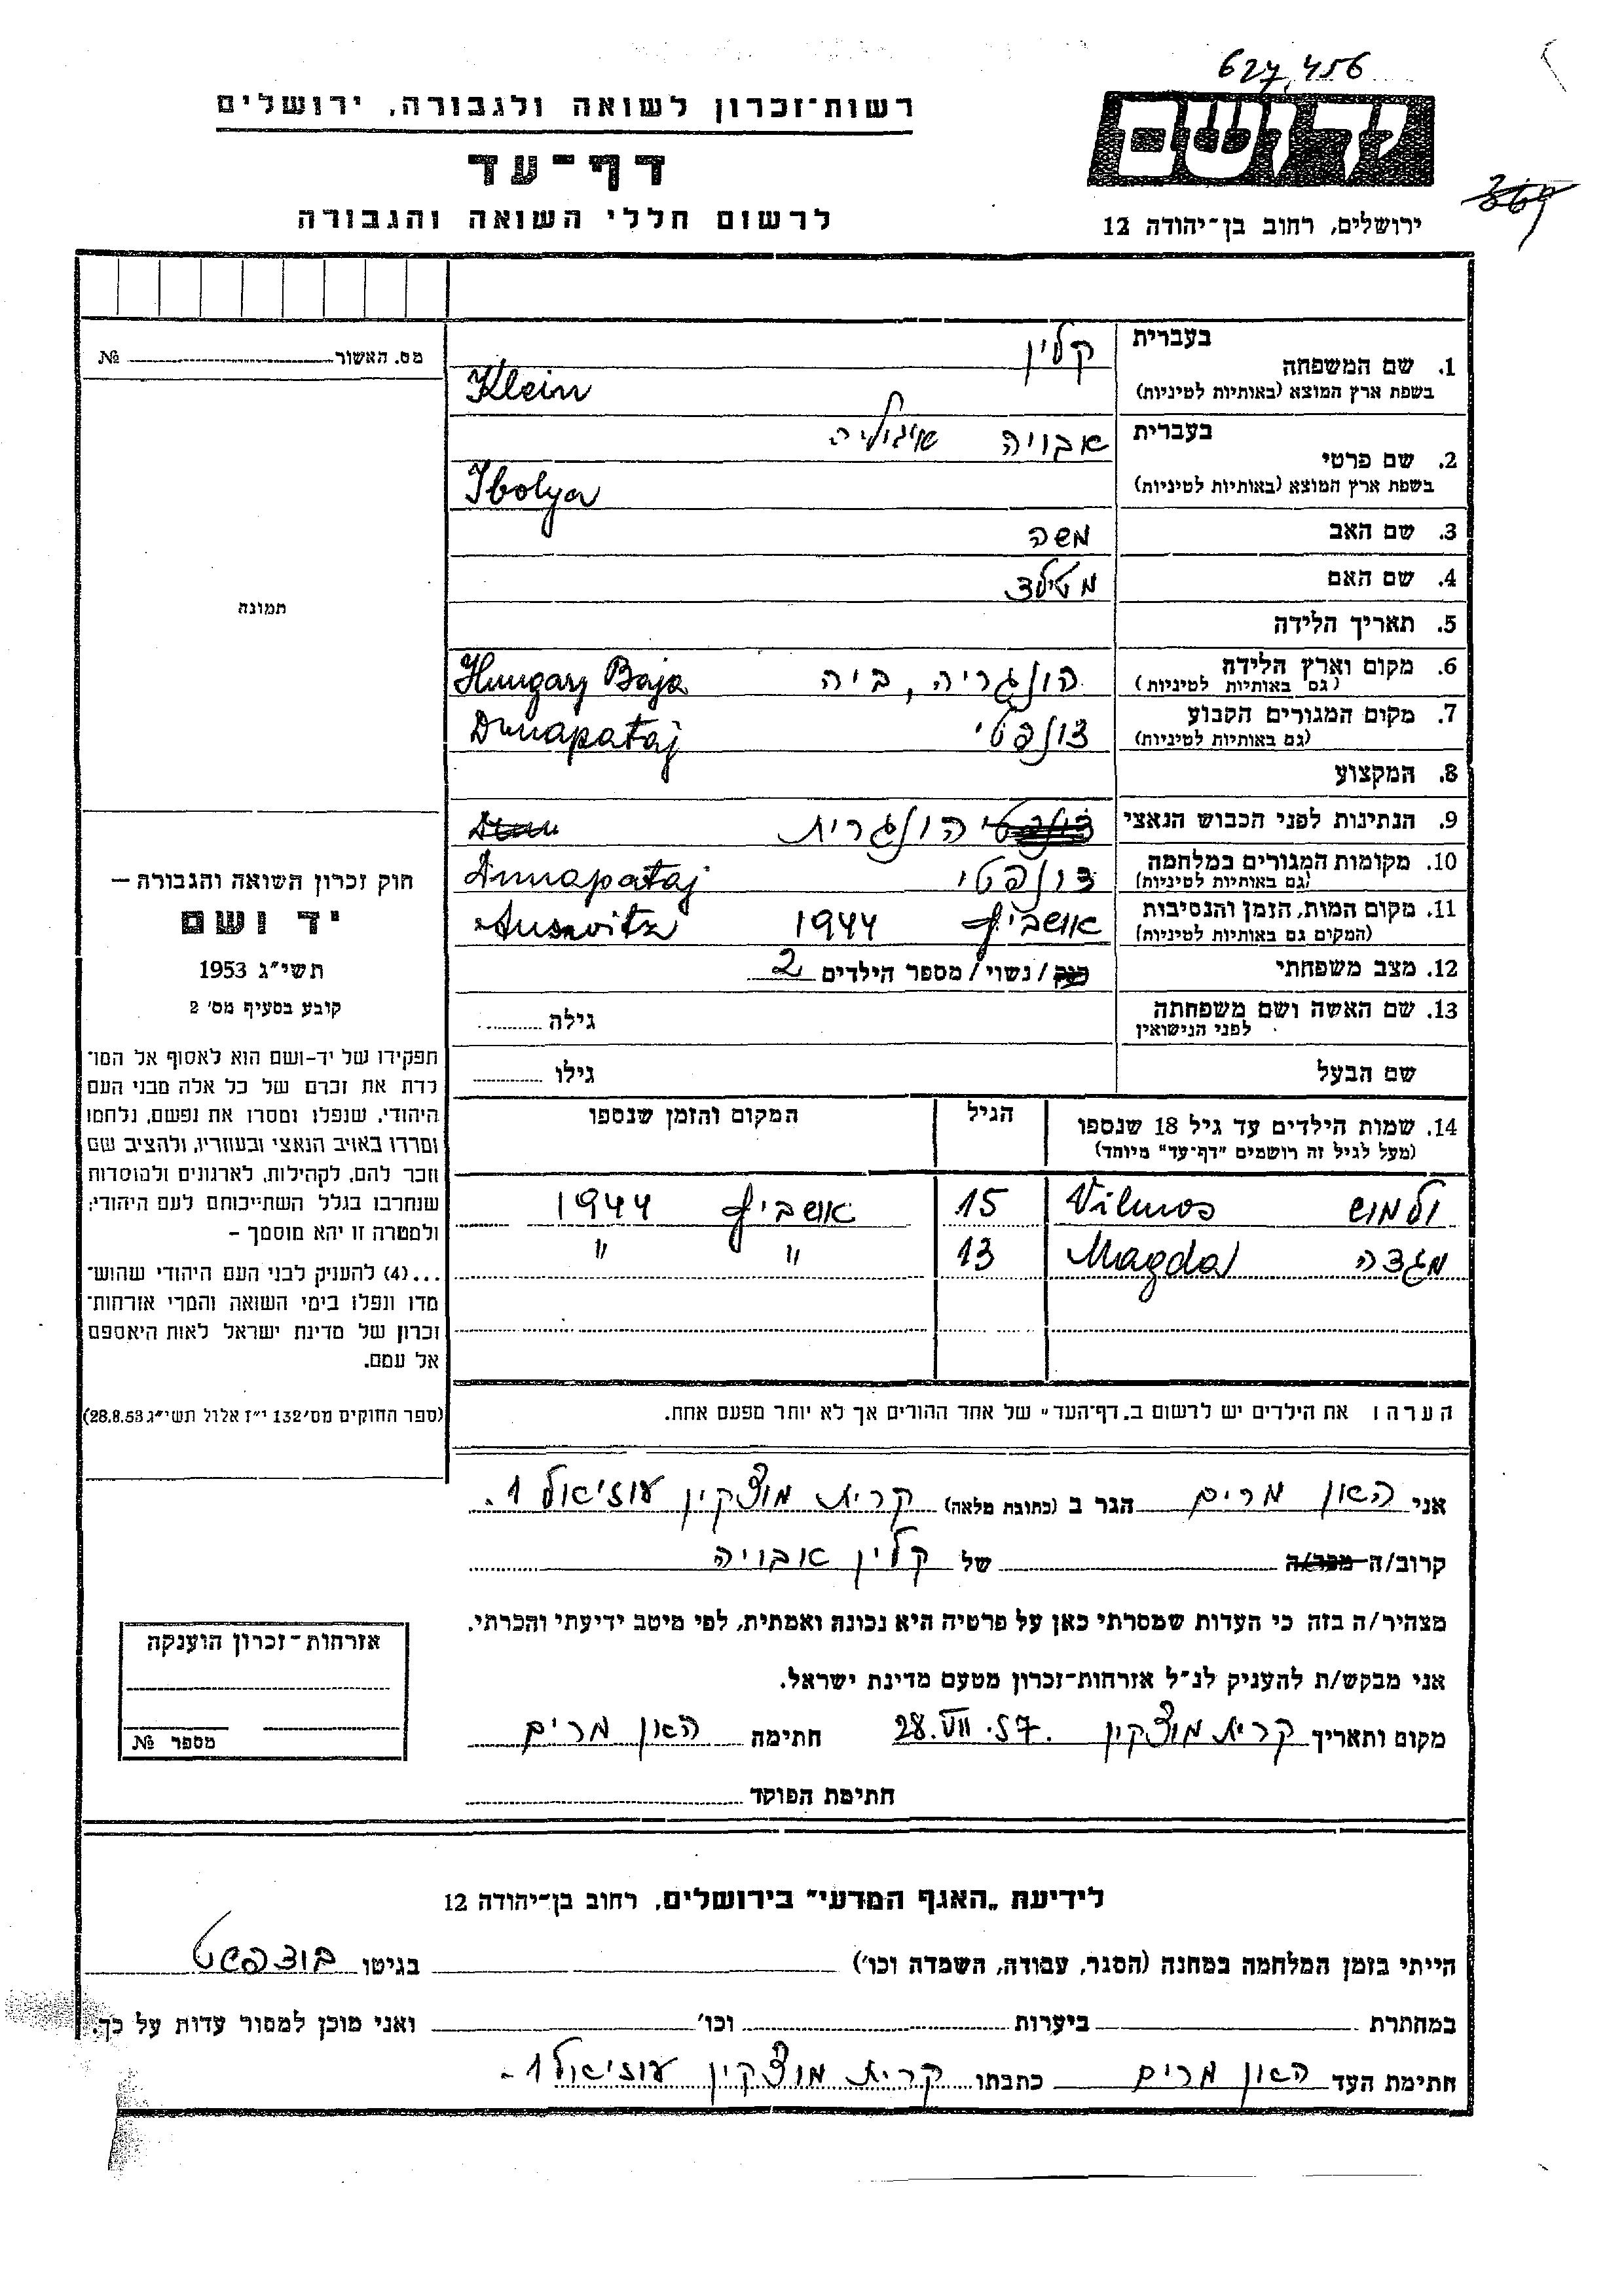 627,456
רשות־זכרון לשואה ולגבורה, ירושלים
יד ושם
דף־עד
לרשום חללי השואה והגבורה
ירושלים, רחוב בן־יהודה 12
מס. האשור № 
1. שם המשפחה בעברית קליין
בשפת ארץ המוצא (באותיות לטיניות) Klein
2. שם פרטי בעברית אבויה
בשפת ארץ המוצא (באותיות לטיניות) Ibolya
3. שם האב משה
4. שם האם מטילד
תמונה
5. תאריך הלידה
6. מקום וארץ הלידה הונגריה, ביה Hungary Baja
(גם באותיות לטיניות)
7. מקום המגורים הקבוע דונפטי Dunapataj
(גם באותיות לטיניות)
8. המקצוע
9. הנתינות לפני הכבוש הנאצי הונגרית
10. מקומות המגורים במלחמה דונפטי Dunapataj
(גם באותיות לטיניות)
11. מקום המות, הזמן והנסיבות אושביץ 1944 Auswitz
(המקום גם באותיות לטיניות)
12. מצב משפחתי רוק / נשוי / מספר הילדים 2
13. שם האשה ושם משפחתה לפני הנישואין גילה
שם הבעל גילו
14. שמות הילדים עד גיל 18 שנספו הגיל המקום והזמן שנספו
(מעל לגיל זה רושמים "דף־עד" מיוחד)
ולמוש Vilmos 15 אושביץ 1944
מגדה Magda 13 " "
הערה: את הילדים יש לרשום ב„דף־העד" של אחד ההורים אך לא יותר מפעם אחת.
חוק זכרון השואה והגבורה –
יד ושם
תשי"ג 1953
קובע בסעיף מס' 2
תפקידו של יד-ושם הוא לאסוף אל המו־
לדת את זכרם של כל אלה מבני העם
היהודי, שנפלו ומסרו את נפשם, נלחמו
ומרדו באויב הנאצי ובעוזריו, ולהציב שם
וזכר להם, לקהילות, לארגונים ולמוסדות
שנחרבו בגלל השתייכותם לעם היהודי;
ולמטרה זו יהא מוסמך –
...(4) להעניק לבני העם היהודי שהוש־
מדו ונפלו בימי השואה והמרי אזרחות־
זכרון של מדינת ישראל לאות היאספם
אל עמם.
(ספר החוקים מס' 132 י"ז אלול תשי"ג 28.8.53)
אני האון מרים הגר ב (כתובת מלאה) קרית מוצקין עוזיאל 1.
קרוב/ה מכר/ה של קליין אבויה
מצהיר/ה בזה כי העדות שמסרתי כאן על פרטיה היא נכונה ואמתית, לפי מיטב ידיעתי והכרתי.
אני מבקש/ת להעניק לנ"ל אזרחות־זכרון מטעם מדינת ישראל.
מקום ותאריך קרית מוצקין 28.VII.57. חתימה האון מרים
חתימת הפוקד
אזרחות־זכרון הוענקה
מספר №
לידיעת „האגף המדעי" בירושלים, רחוב בן־יהודה 12
הייתי בזמן המלחמה במחנה (הסגר, עבודה, השמדה וכו') בגיטו בודפשט
במחתרת ביערות וכו' ואני מוכן למסור עדות על כך.
חתימת העד האון מרים כתבתו קרית מוצקין עוזיאל 1.